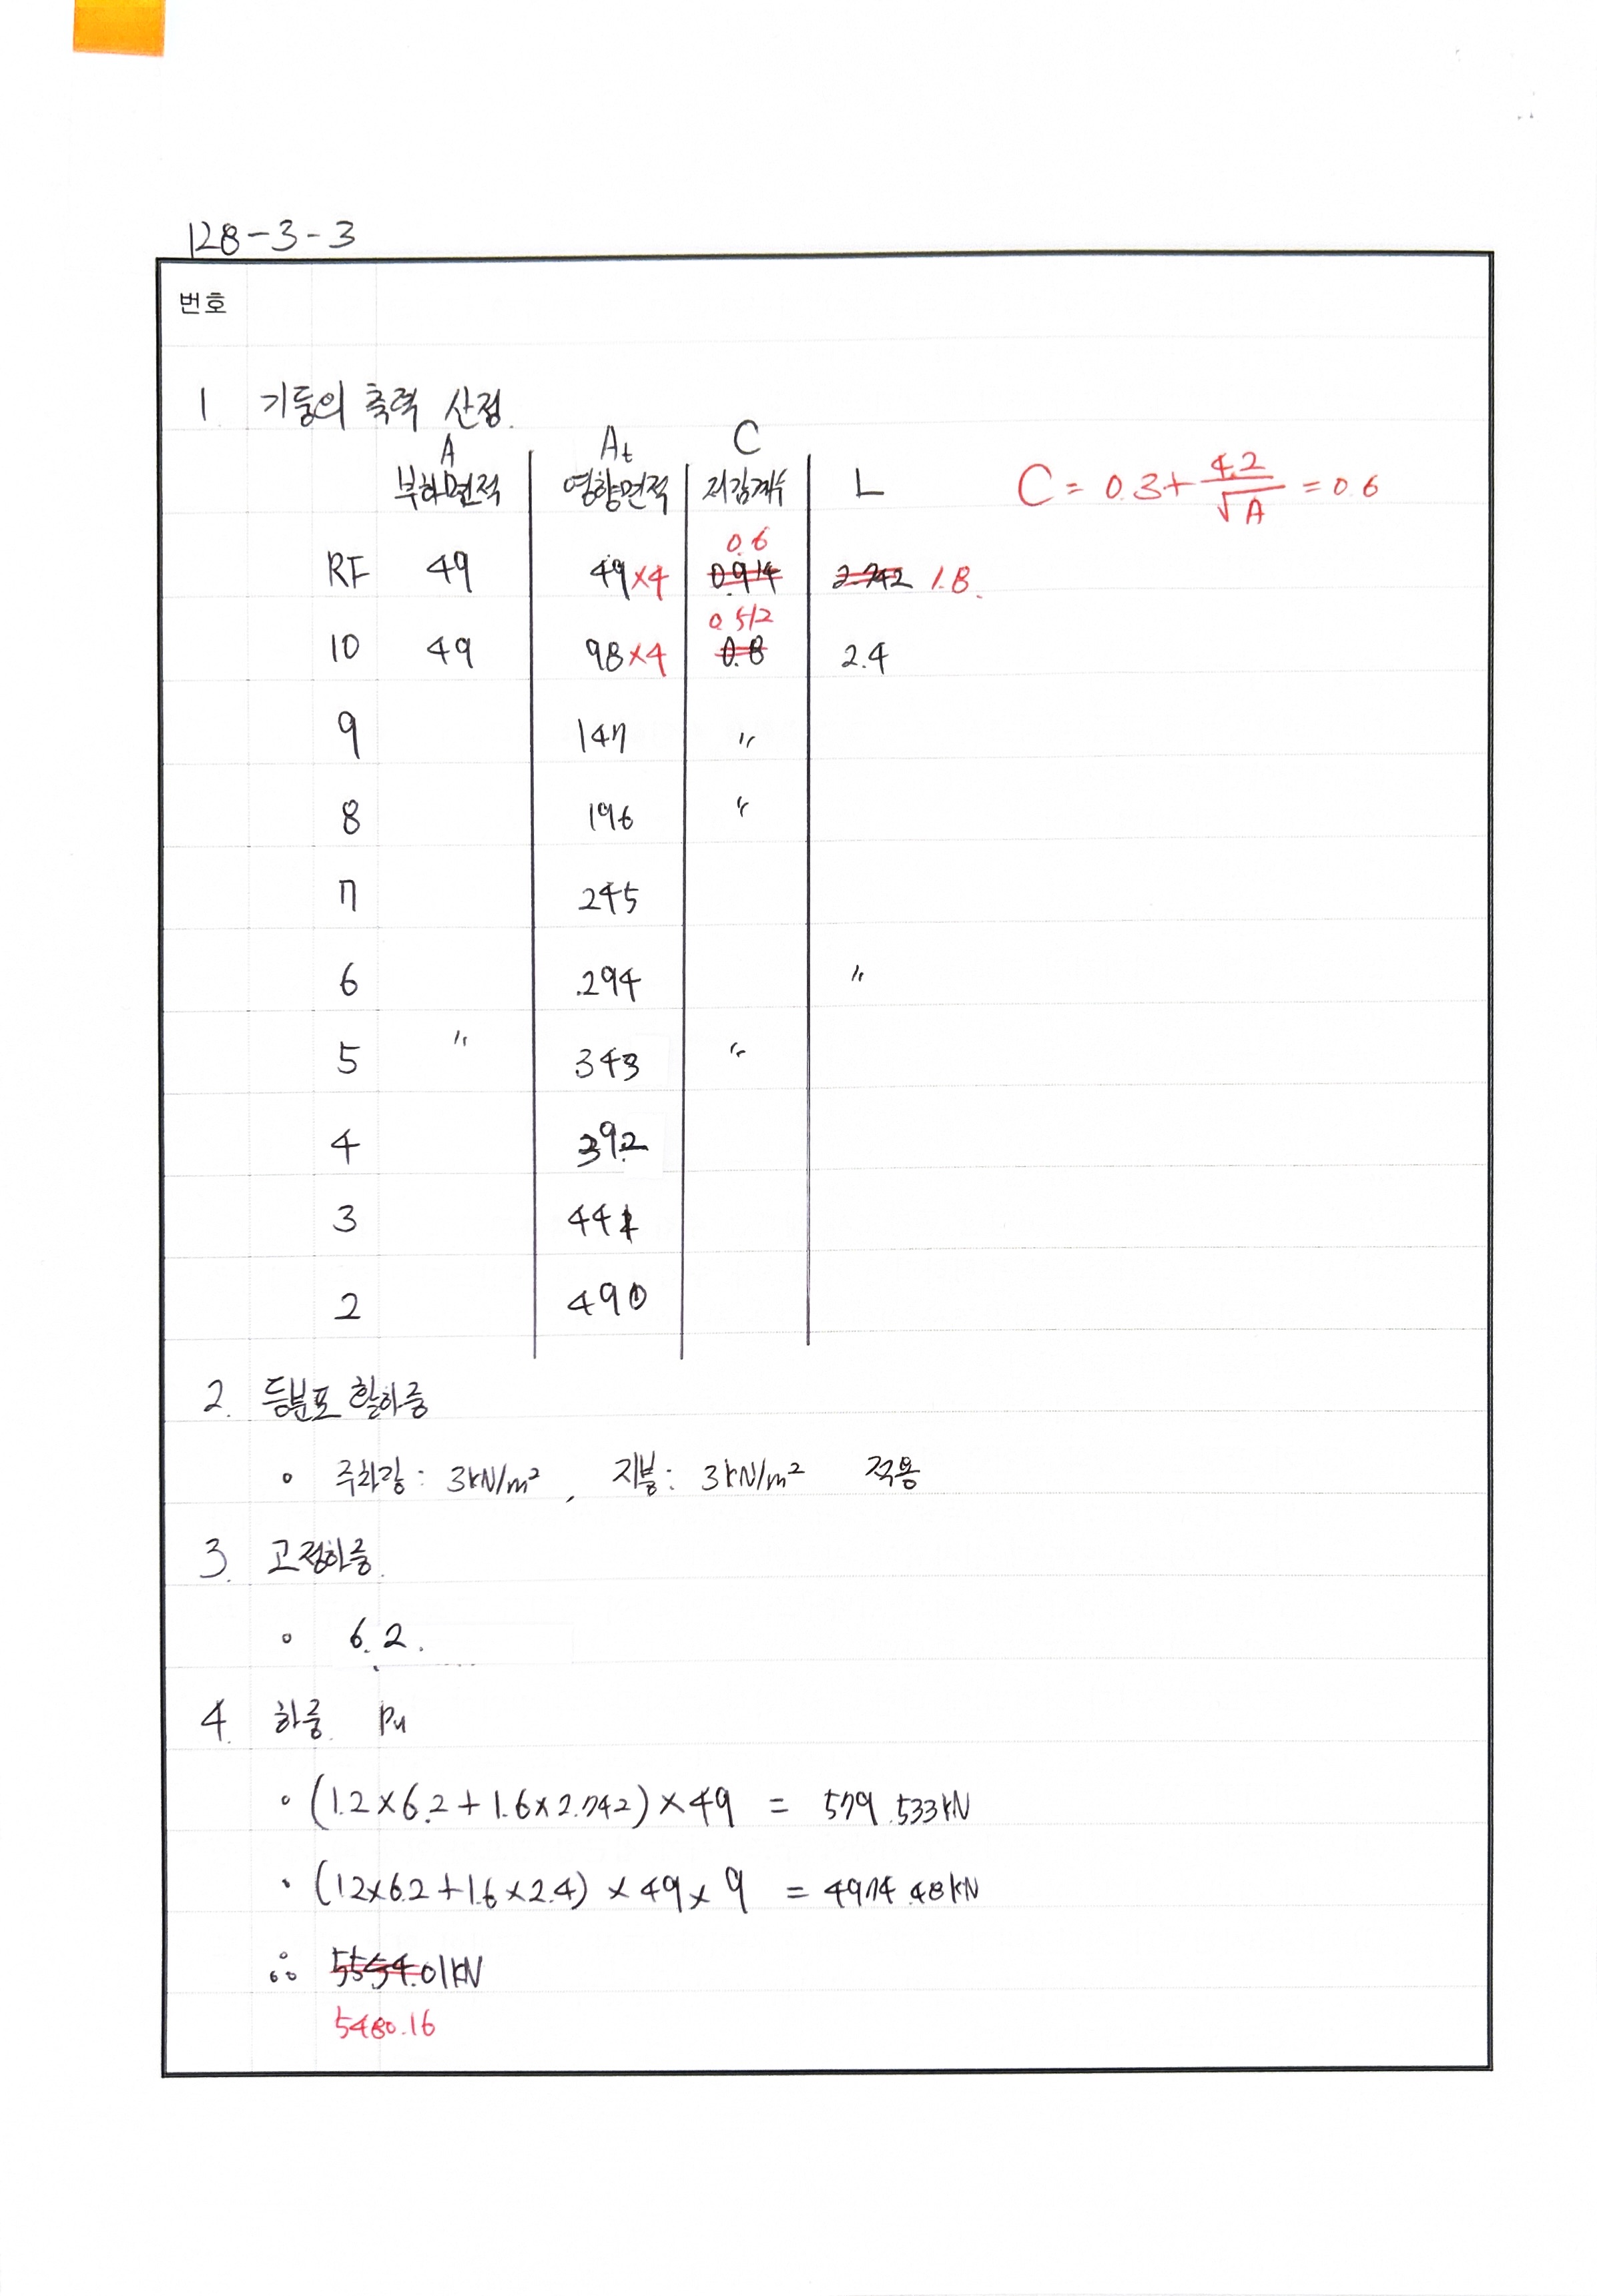 128-3-3
번호
1 기둥의 축력 산정.
A At C
부하면적 영향면적 저감계수 L C = 0.3+ 4.2/√A = 0.6
0.6
RF 49 49×4 0.914 2.742 1.8.
0.512
10 49 98×4 0.8 2.4
9 147 〃
8 196 〃
7 245
6 294 〃
5 〃 343 〃
4 392
3 441
2 490
2. 등분포 활하중
◦ 주차장 : 3kN/m², 지붕 : 3kN/m² 적용
3. 고정하중.
◦ 6.2.
4. 하중. Pu
◦ (1.2×6.2+1.6×2.742)×49 = 579.533kN
• (1.2×6.2+1.6×2.4)×49×9 = 4974.48kN
∴ 5554.01kN
5480.16